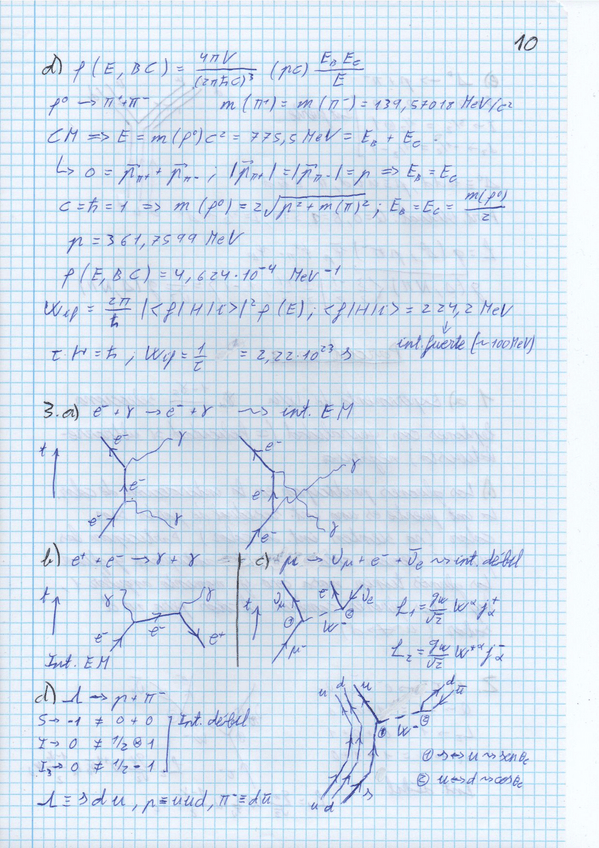 10
d) ρ(E, BC) = 4πV/(2πħc)³ (pc) E_B E_C/E
ρ⁰ → π⁺π⁻ m(π⁺) = m(π⁻) = 139,57018 MeV/c²
CM ⇒ E = m(ρ⁰)c² = 775,5 MeV = E_B + E_C.
↳ 0 = p⃗π+ + p⃗π- ; |p⃗π+| = |p⃗π-| = p ⇒ E_B = E_C
c = ħ = 1 ⇒ m(ρ⁰) = 2√(p² + m(π)²) ; E_B = E_C = m(ρ⁰)/2
p = 361,7599 MeV
ρ(E, BC) = 4,624·10⁻⁴ MeV⁻¹
W_if = 2π/ħ |<f|H|i>|² ρ(E) ; <f|H|i> = 224,2 MeV
int. fuerte (~100 MeV)
τ·W = ħ , W_if = 1/τ = 2,22·10²³ s
3. a) e⁻ + γ → e⁻ + γ ⇝ int. EM
t e⁻ γ e⁻ e⁻ γ
e⁻ γ e⁻ e⁻ γ
b) e⁺ + e⁻ → γ + γ
t γ γ e⁻ e⁻ e⁺
Int. EM
c) μ → ν_μ + e⁻ + ν̄_e ⇝ int. débil
t ν_μ e⁻ ν̄_e ① ② W⁻ μ⁻
L₁ = g_w/√2 W^α j_α⁺
L₂ = g_w/√2 W^{+α} j_α⁻
d) Λ → p + π⁻
S → -1 ≠ 0 + 0
I → 0 ≠ 1/2 ⊗ 1
I₃ → 0 ≠ 1/2 - 1
Int. débil
u d u d ū
① W⁻ ②
u d s
① s ↔ u ⇝ senθ_c
② u ↔ d ⇝ cosθ_c
Λ ≡ s d u , p ≡ u u d , π⁻ ≡ d ū